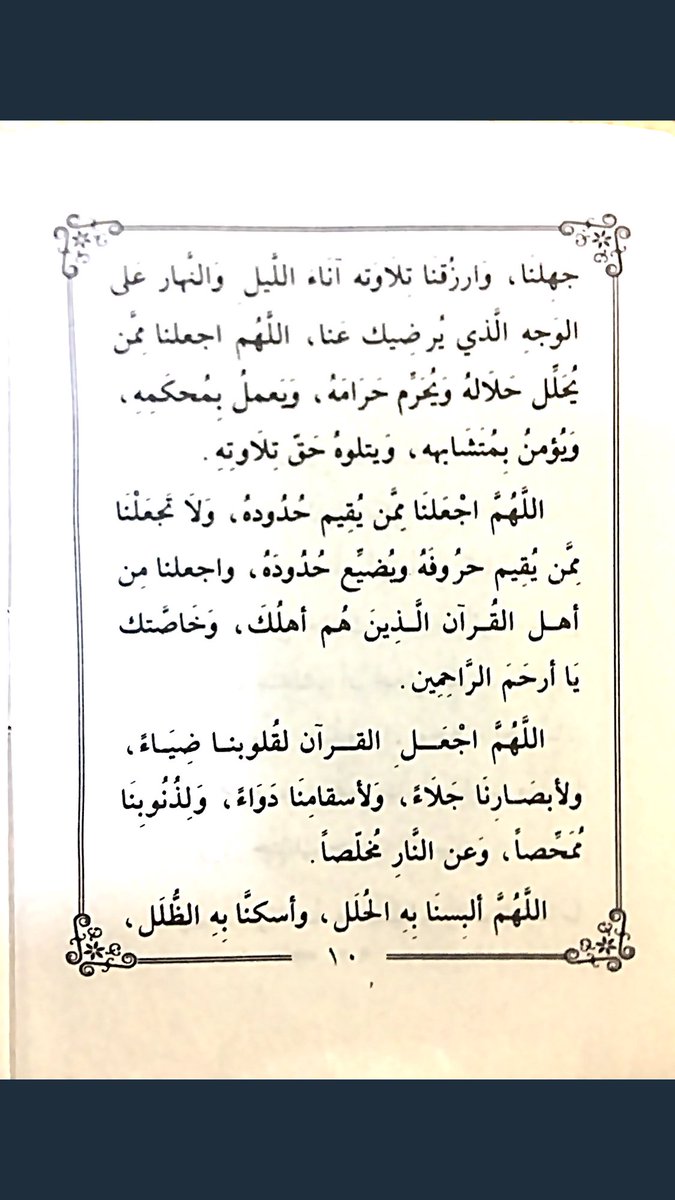 جهِلنَا، وَارزُقنا تِلَاوَته آنَاءَ اللَّيل وَالنَّهار عَلى
الوَجهِ الَّذي يُرضِيك عَنا، اللَّهُم اجعلنا مِمَّن
يُحَلِّل حَلَالهُ وَيُحَرِّم حَرَامَهُ، وَيَعملُ بِمُحكَمِهِ،
وَيُؤمنُ بِمُتَشَابهه، وَيتلوهُ حَقّ تِلَاوتِهِ.
اللَّهُمَّ اجْعَلنَا مِمَّن يُقِيم حُدُودهُ، وَلَا تَجعَلْنَا
مِمَّن يُقِيم حرُوفَهُ ويُضيِّع حُدُودَهُ، واجعلنا مِن
أهـل القُـرآن الَّـذِينَ هُم أهلُكَ، وَخَاصَّتك
يَا أرحَمَ الرَّاحِمِين.
اللَّهُمَّ اجْعَـــلِ القـــرآن لقُلوبنـا ضِيَـاءً،
ولأبصَـارِنَا جَلَاءً، وَلأسقامِنَا دَوَاءً، وَلِذُنُوبِنَا
مُمَحِّصاً، وَعن النَّارِ مُخلّصاً.
اللَّهُمَّ ألبِسنَا بِهِ الحُلَل، وأسكنَّا بِهِ الظُّلَل،
١٠